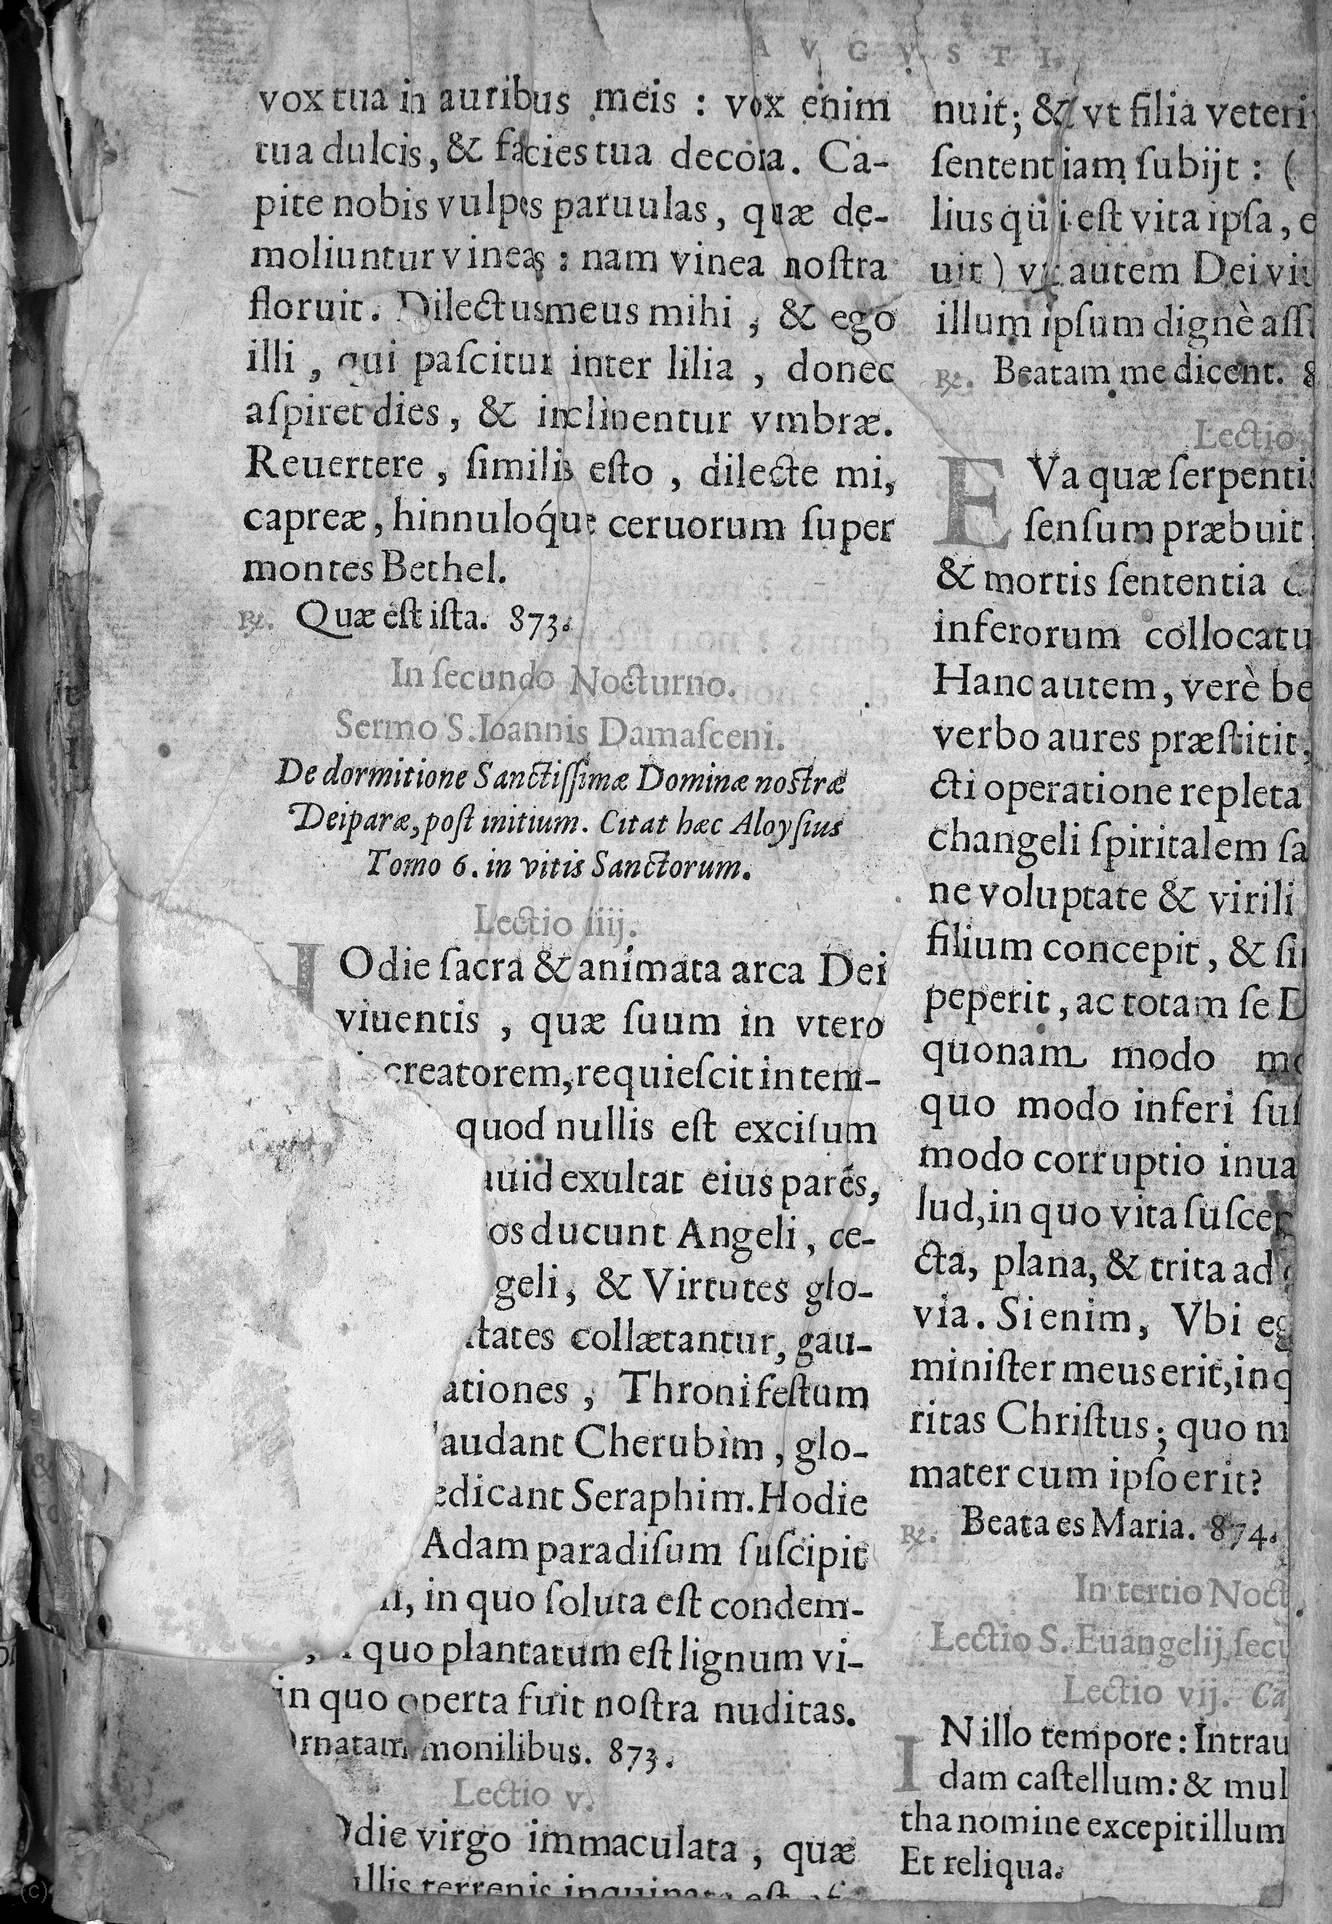 AVGVSTI
vox tua in auribus meis : vox enim
tua dulcis, & facies tua decora. Ca-
pite nobis vulpes paruulas, quæ de-
moliuntur vineas : nam vinea nostra
floruit. Dilectus meus mihi, & ego
illi, qui pascitur inter lilia, donec
aspiret dies, & inclinentur vmbræ.
Reuertere, similis esto, dilecte mi,
capreæ, hinnulóque ceruorum super
montes Bethel.
℟. Quæ est ista. 873.
In secundo Nocturno.
Sermo S. Ioannis Damasceni.
De dormitione Sanctissimæ Dominæ nostræ
Deiparæ, post initium. Citat hæc Aloysius
Tomo 6. in vitis Sanctorum.
Lectio iiij.
Odie sacra & animata arca Dei
viuentis, quæ suum in vtero
creatorem, requiescit in tem-
quod nullis est excisum
uid exultat eius parés,
os ducunt Angeli, ce-
geli, & Virtutes glo-
tates collætantur, gau-
ationes, Throni festum
audant Cherubim, glo-
edicant Seraphim. Hodie
Adam paradisum suscipit
in quo soluta est condem-
quo plantatum est lignum vi-
in quo operta fuit nostra nuditas.
rnatam monilibus. 873.
Lectio v.
Odie virgo immaculata, quæ
llis terrenis inquinata est
nuit; & vt filia veteris
sententiam subijt : (
lius qui est vita ipsa, e
uit) vt autem Dei viu
illum ipsum dignè assu
℟. Beatam me dicent. 8
Lectio
EVa quæ serpentis
sensum præbuit
& mortis sententia
inferorum collocatu
Hanc autem, verè be
verbo aures præstitit,
cti operatione repleta
changeli spiritalem sa
ne voluptate & virili
filium concepit, & si
peperit, ac totam se D
quonam modo mo
quo modo inferi sus
modo corruptio inua
lud, in quo vita suscep
cta, plana, & trita ad
via. Si enim, Vbi eg
minister meus erit, inq
ritas Christus; quo m
mater cum ipso erit?
℟. Beata es Maria. 874.
In tertio Noct
Lectio S. Euangelij secu
Lectio vij. Ca
IN illo tempore: Intrau
dam castellum: & mul
tha nomine excepit illum
Et reliqua.